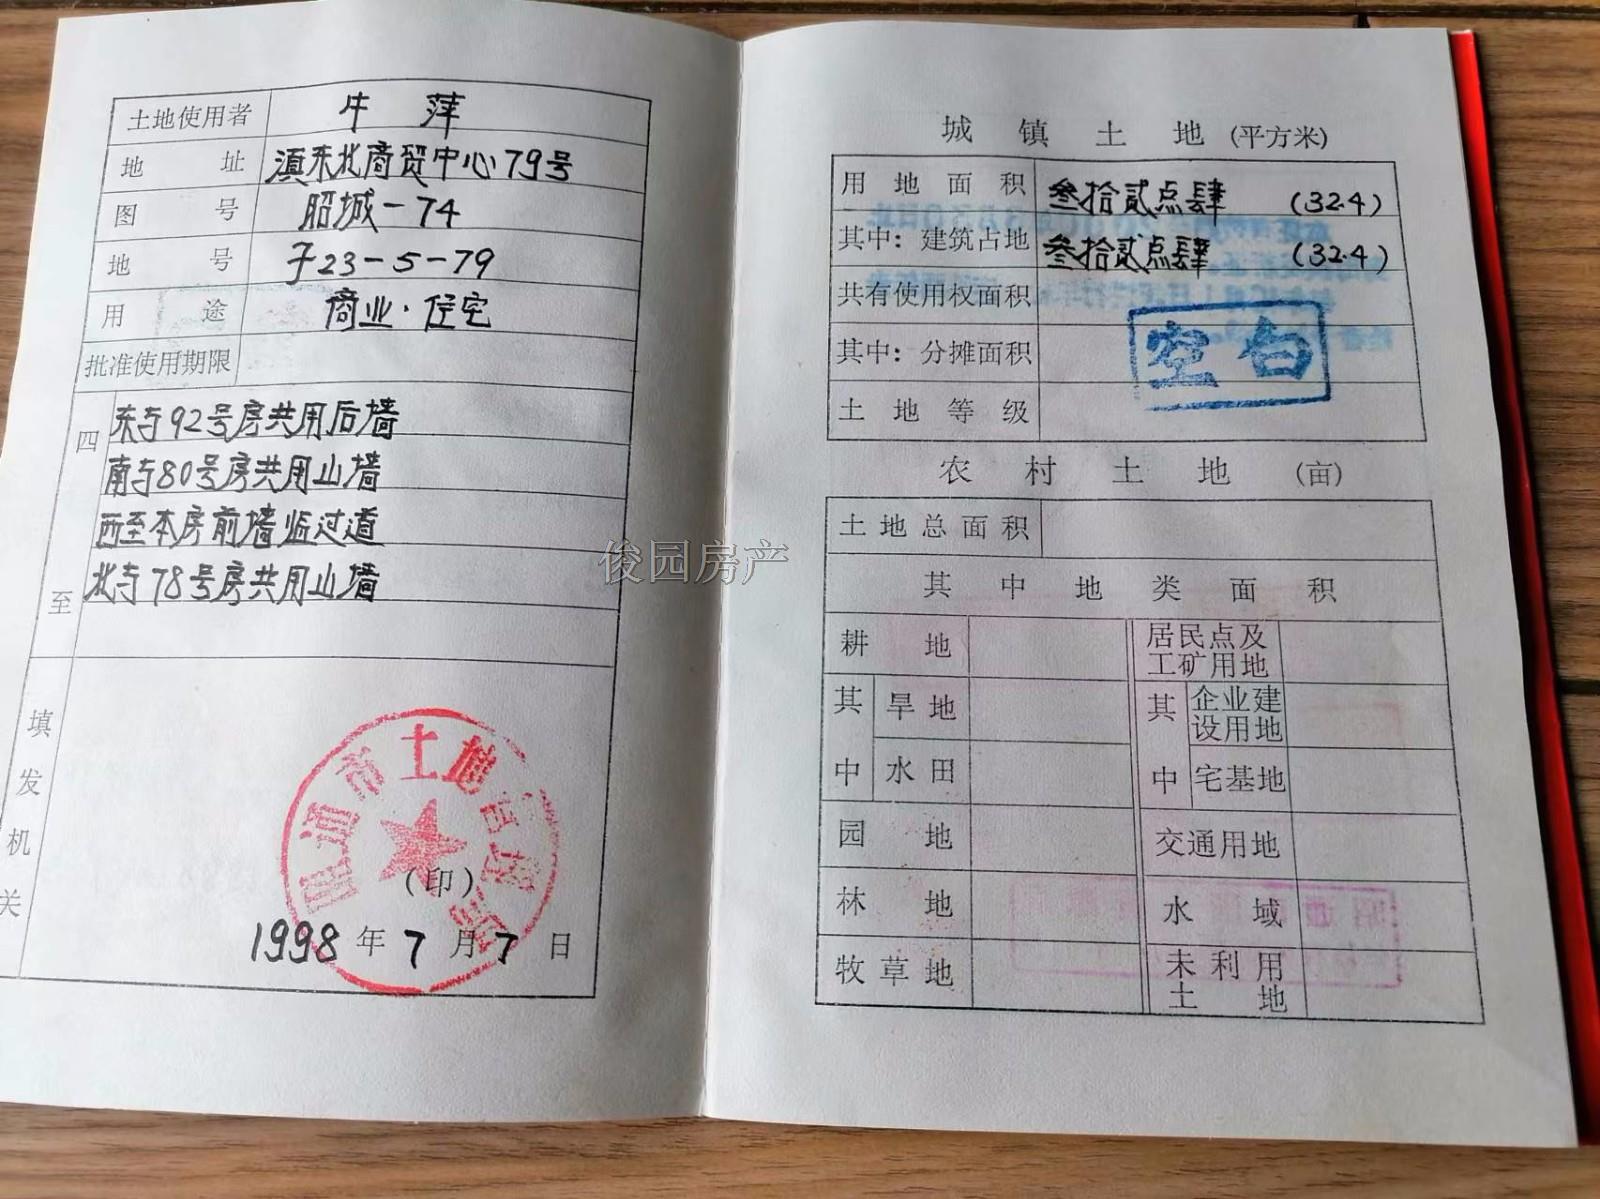 土地使用者 牛萍
地址 滇东北商贸中心79号
图号 昭城-74
地号 子23-5-79
用途 商业·住宅
批准使用期限
四至
东与92号房共用后墙
南与80号房共用山墙
西至本房前墙临过道
北与78号房共用山墙
填发机关
昭通市土地管理局
(印)
1998年7月7日
俊园房产
城镇土地(平方米)
用地面积 叁拾贰点肆 (32.4)
其中:建筑占地 叁拾贰点肆 (32.4)
共有使用权面积
其中:分摊面积
空白
土地等级
农村土地 (亩)
土地总面积
其中地类面积
耕地 居民点及工矿用地
其中 旱地 其中 企业建设用地
水田 宅基地
园地 交通用地
林地 水域
牧草地 未利用土地